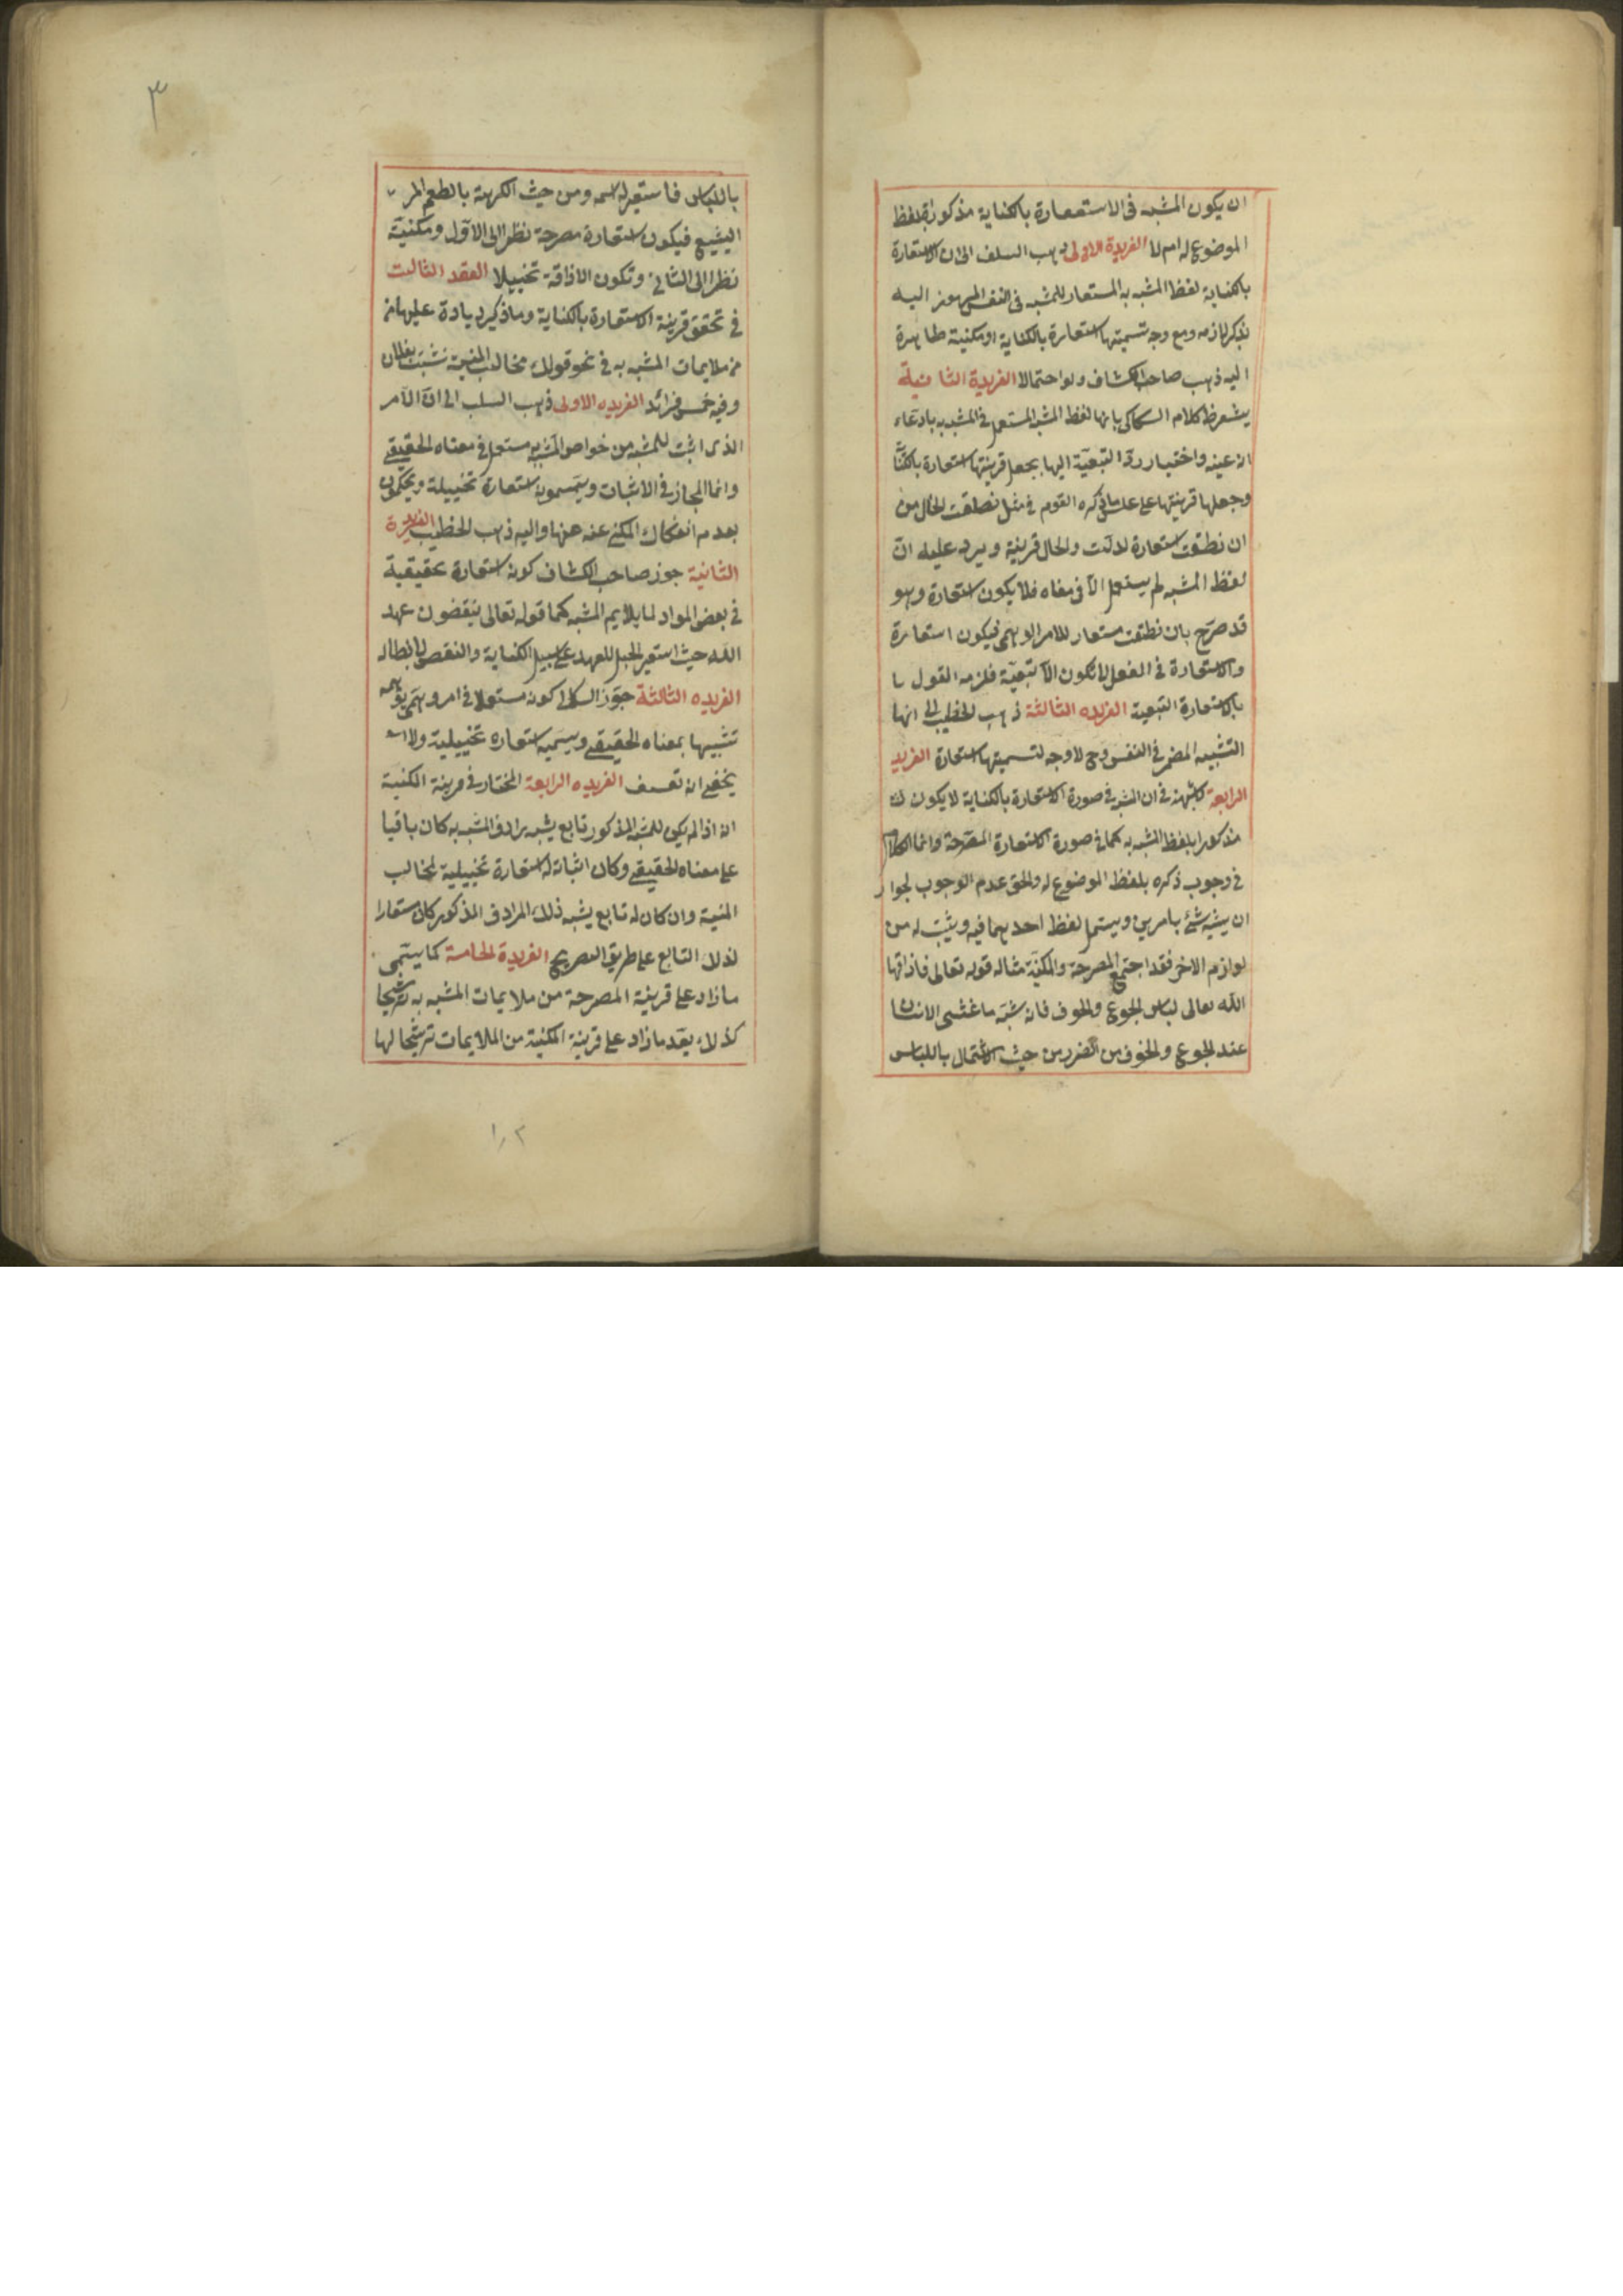 ان يكون المشبه فى الاستعارة بالكناية مذكورا بلفظ
الموضوع له ام لا الفريدة الاولى ذهب السلف الى ان الاستعارة
بالكناية لفظ المشبه به المستعار للمشبه فى النفس المرموز اليه
بذكر لازمه ومع وجه تسميتها استعارة بالكناية او مكنية ظاهرة
اليه ذهب صاحب الكشاف ولو احتمالا الفريدة الثانية
يشعر ظ كلام السكاكى بانها لفظ المشبه المستعمل فى المشبه به بادعاء
انه عينه واختيار رد التبعية اليها بجعل قرينتها استعارة بالكناية
وجعلها قرينتها على عكس ما ذكره القوم فى مثل نطقت الحال من
ان نطقت استعارة لدلت والحال قرينة ويرد عليه ان
لفظ المشبه لم يستعمل الا فى معناه فلا يكون استعارة وهو
قد صرح بان نطقت مستعار للامر الوهمى فيكون استعارة
والاستعارة فى الفعل لا تكون الا تبعية فلزمه القول با
بالاستعارة التبعية الفريده الثالثة ذهب الخطيب الى انها
التشبيه المضمر فى النفس وح لا وجه لتسميتها استعارة الفريد
الرابعة لا شبهة فى ان المشبه فى صورة الاستعارة بالكناية لا يكون
مذكورا بلفظ المشبه به كما فى صورة الاستعارة المصرحة وانما الكلام
فى وجوب ذكره بلفظ الموضوع له والحق عدم الوجوب لجواز
ان يشبه شئ بامرين ويستعمل لفظ احدهما فيه ويثبت له من
لوازم الاخر فقد اجتمع المصرحة والمكنية مثاله قوله تعالى فاذاقها
الله تعالى لباس الجوع والخوف فانه شبه ما غشى الانسان
عند الجوع والخوف من الضرر من حيث الاشتمال باللباس
٣
باللباس فاستعير له اسمه ومن حيث الكرهة بالطعم المر
البشيع فيكون استعارة مصرحة نظرا الى الاول ومكنية
نظرا الى الثانى وتكون الاذاقة تخييلا العقد الثالث
فى تحقق قرينة الاستعارة بالكناية وما ذكر زيادة عليها من
من ملايمات المشبه به فى نحو قولك مخالب المنية نشبت بفلان
وفيه خمس فرائد الفريده الاولى ذهب السلب الى ان الامر
الذى اثبت للمشبه من خواص المشبه به مستعمل فى معناه الحقيقى
وانما المجاز فى الاثبات ويسمونه استعارة تخييلة ويحكمون
بعدم انفكاك المكنى عنه عنها واليه ذهب الخطيب الفريدة
الثانية جوز صاحب الكشاف كونه استعارة تحقيقية
فى بعض المواد لما يلايم المشبه كما قوله تعالى ينقضون عهد
الله حيث استعير الحبل للعهد على سبيل الكناية والنقض لابطاله
الفريده الثالثة جوز السكاكى كونه مستعملا فى امر وهمى توهمه
تشبيها بمعناه الحقيقى ويسميه استعاره تخييلية ولا
يخفى انه تعسف الفريده الرابعة المختار فى قرينة المكنية
انه اذا لم يكن للمشبه المذكور تابع يشبه رادف المشبه به كان باقيا
على معناه الحقيقى وكان اثباته له استعارة تخييلية لمخالب
المنية وان كان له تابع يشبه ذلك المرادف المذكور كان مستعارا
لذلك التابع على طريق التصريح الفريدة الخامسة كما يسمى
ما زاد على قرينة المصرحة من ملايمات المشبه به ترشيحا
كذلك يعد ما زاد على قرينة المكنية من الملايمات ترشيحا لها